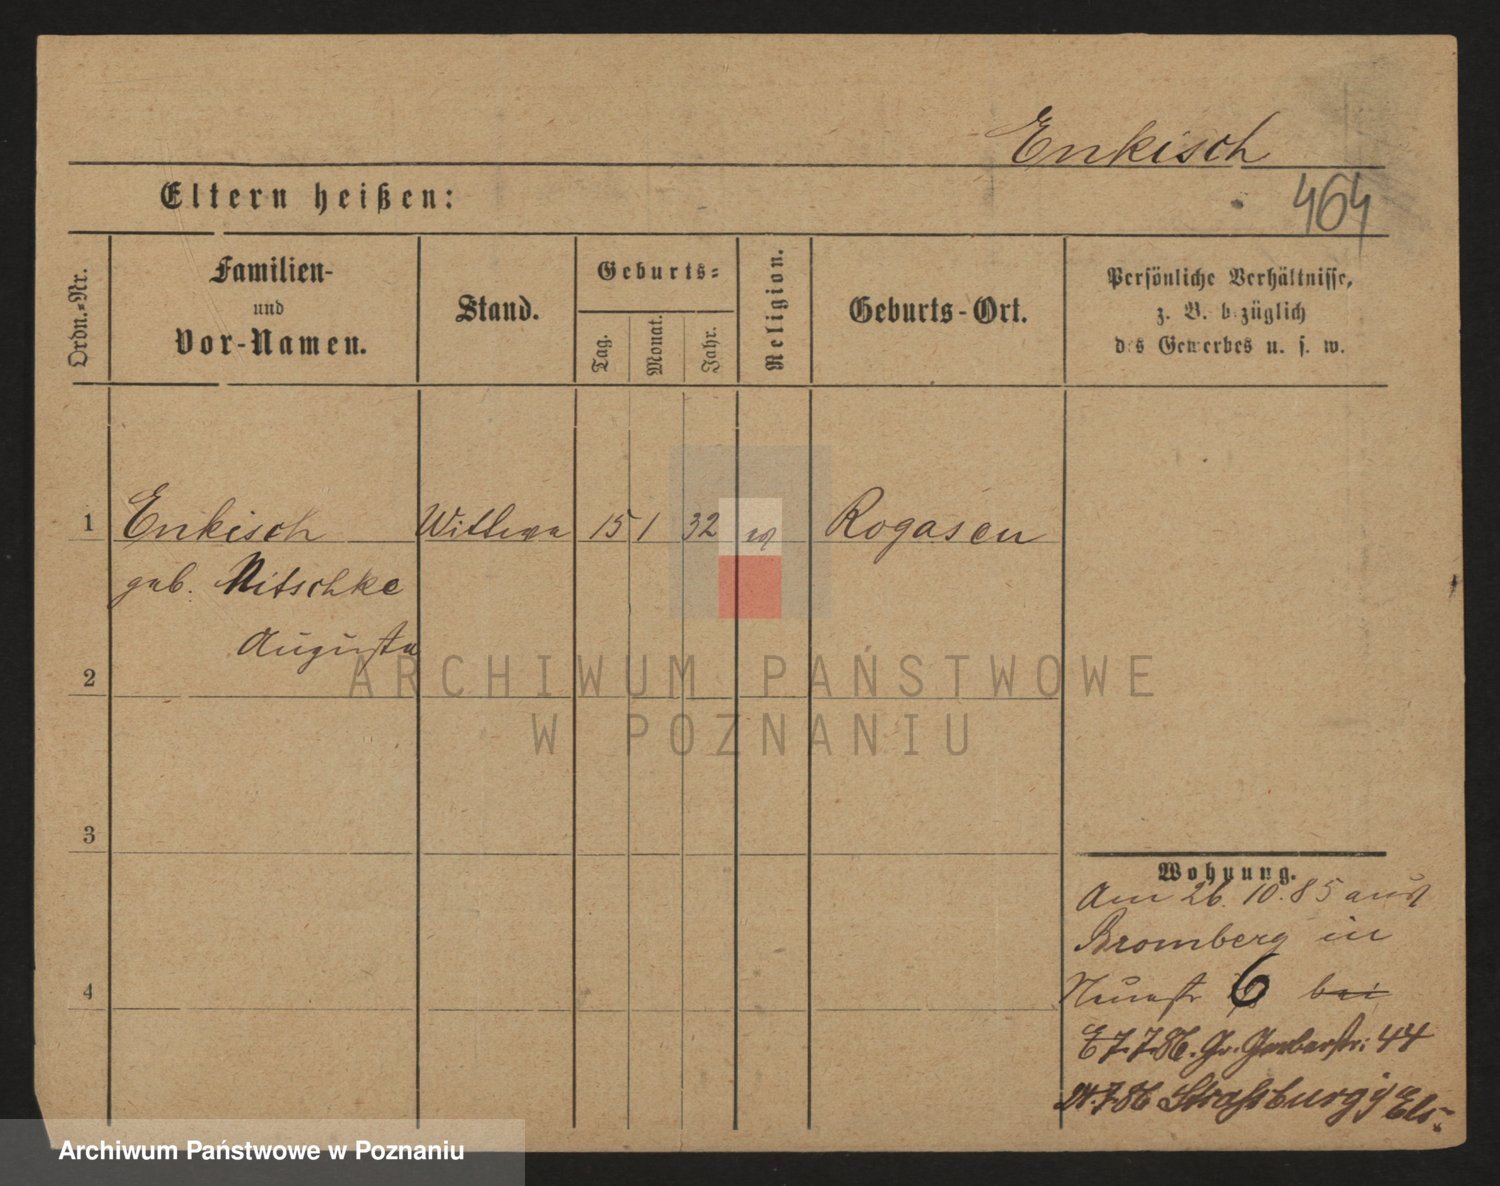 Enkisch
Eltern heißen:
464
Ordn.-Nr.
Familien-
und
Vor-Namen.
Stand.
Geburts-
Tag.
Monat.
Jahr.
Religion.
Geburts-Ort.
Persönliche Verhältnisse,
z. B. bezüglich
des Gewerbes u. s. w.
1 Enkisch Wittwe 15 1 32 Rogasen
geb. Nitschke
Augusta
2
3
4
Wohnung.
Am 26. 10. 85 aus
Bromberg in
Neuestr 6 bei
7.7.86. Gr. Gerberstr: 44
7 86 Straßburg i/ Els.
ARCHIWUM PAŃSTWOWE
W POZNANIU
Archiwum Państwowe w Poznaniu